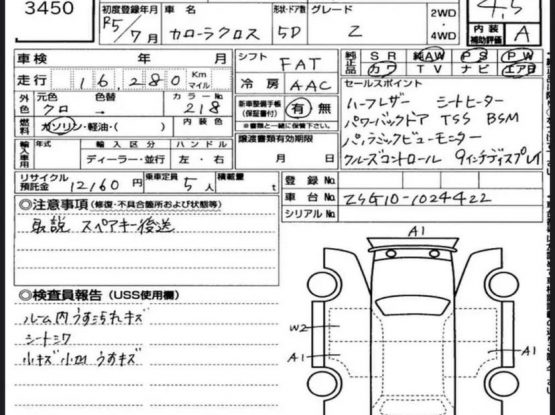 3450
初度登録年月 R5/7月
車名 カローラクロス
形状・ドア数 5D
グレード Z
2WD
4WD
4.5
内装補助評価 A
車検 年 月
走行 16,280 Km マイル
シフト FAT
冷房 AAC
純正品 SR 純AW PS PW
カワ TV ナビ エアB
外色 元色 クロ → 色替
カラーNo 218
燃料 ガソリン・軽油・( )
内装色
新車整備手帳(保証書付) 有 無
※書類と一緒に保管下さい。
輸入車用 年式 輸入区分 ハンドル
ディーラー・並行 左・右
譲渡書類有効期限
月 日
セールスポイント
ハーフレザー シートヒーター
パワーバックドア TSS BSM
パノラミックビューモニター
クルーズコントロール 9インチディスプレイ
リサイクル預託金 12160円
乗車定員 5人
積載量 t
登録No.
車台No. ZSG10-1024422
シリアルNo.
◎注意事項(修復・不具合箇所および状態等)
取説 スペアキー後送
◎検査員報告(USS使用欄)
ルーム内うすこすれキズ
シートシワ
小キズ 小凹 うすキズ
A1
W2
A1
A1